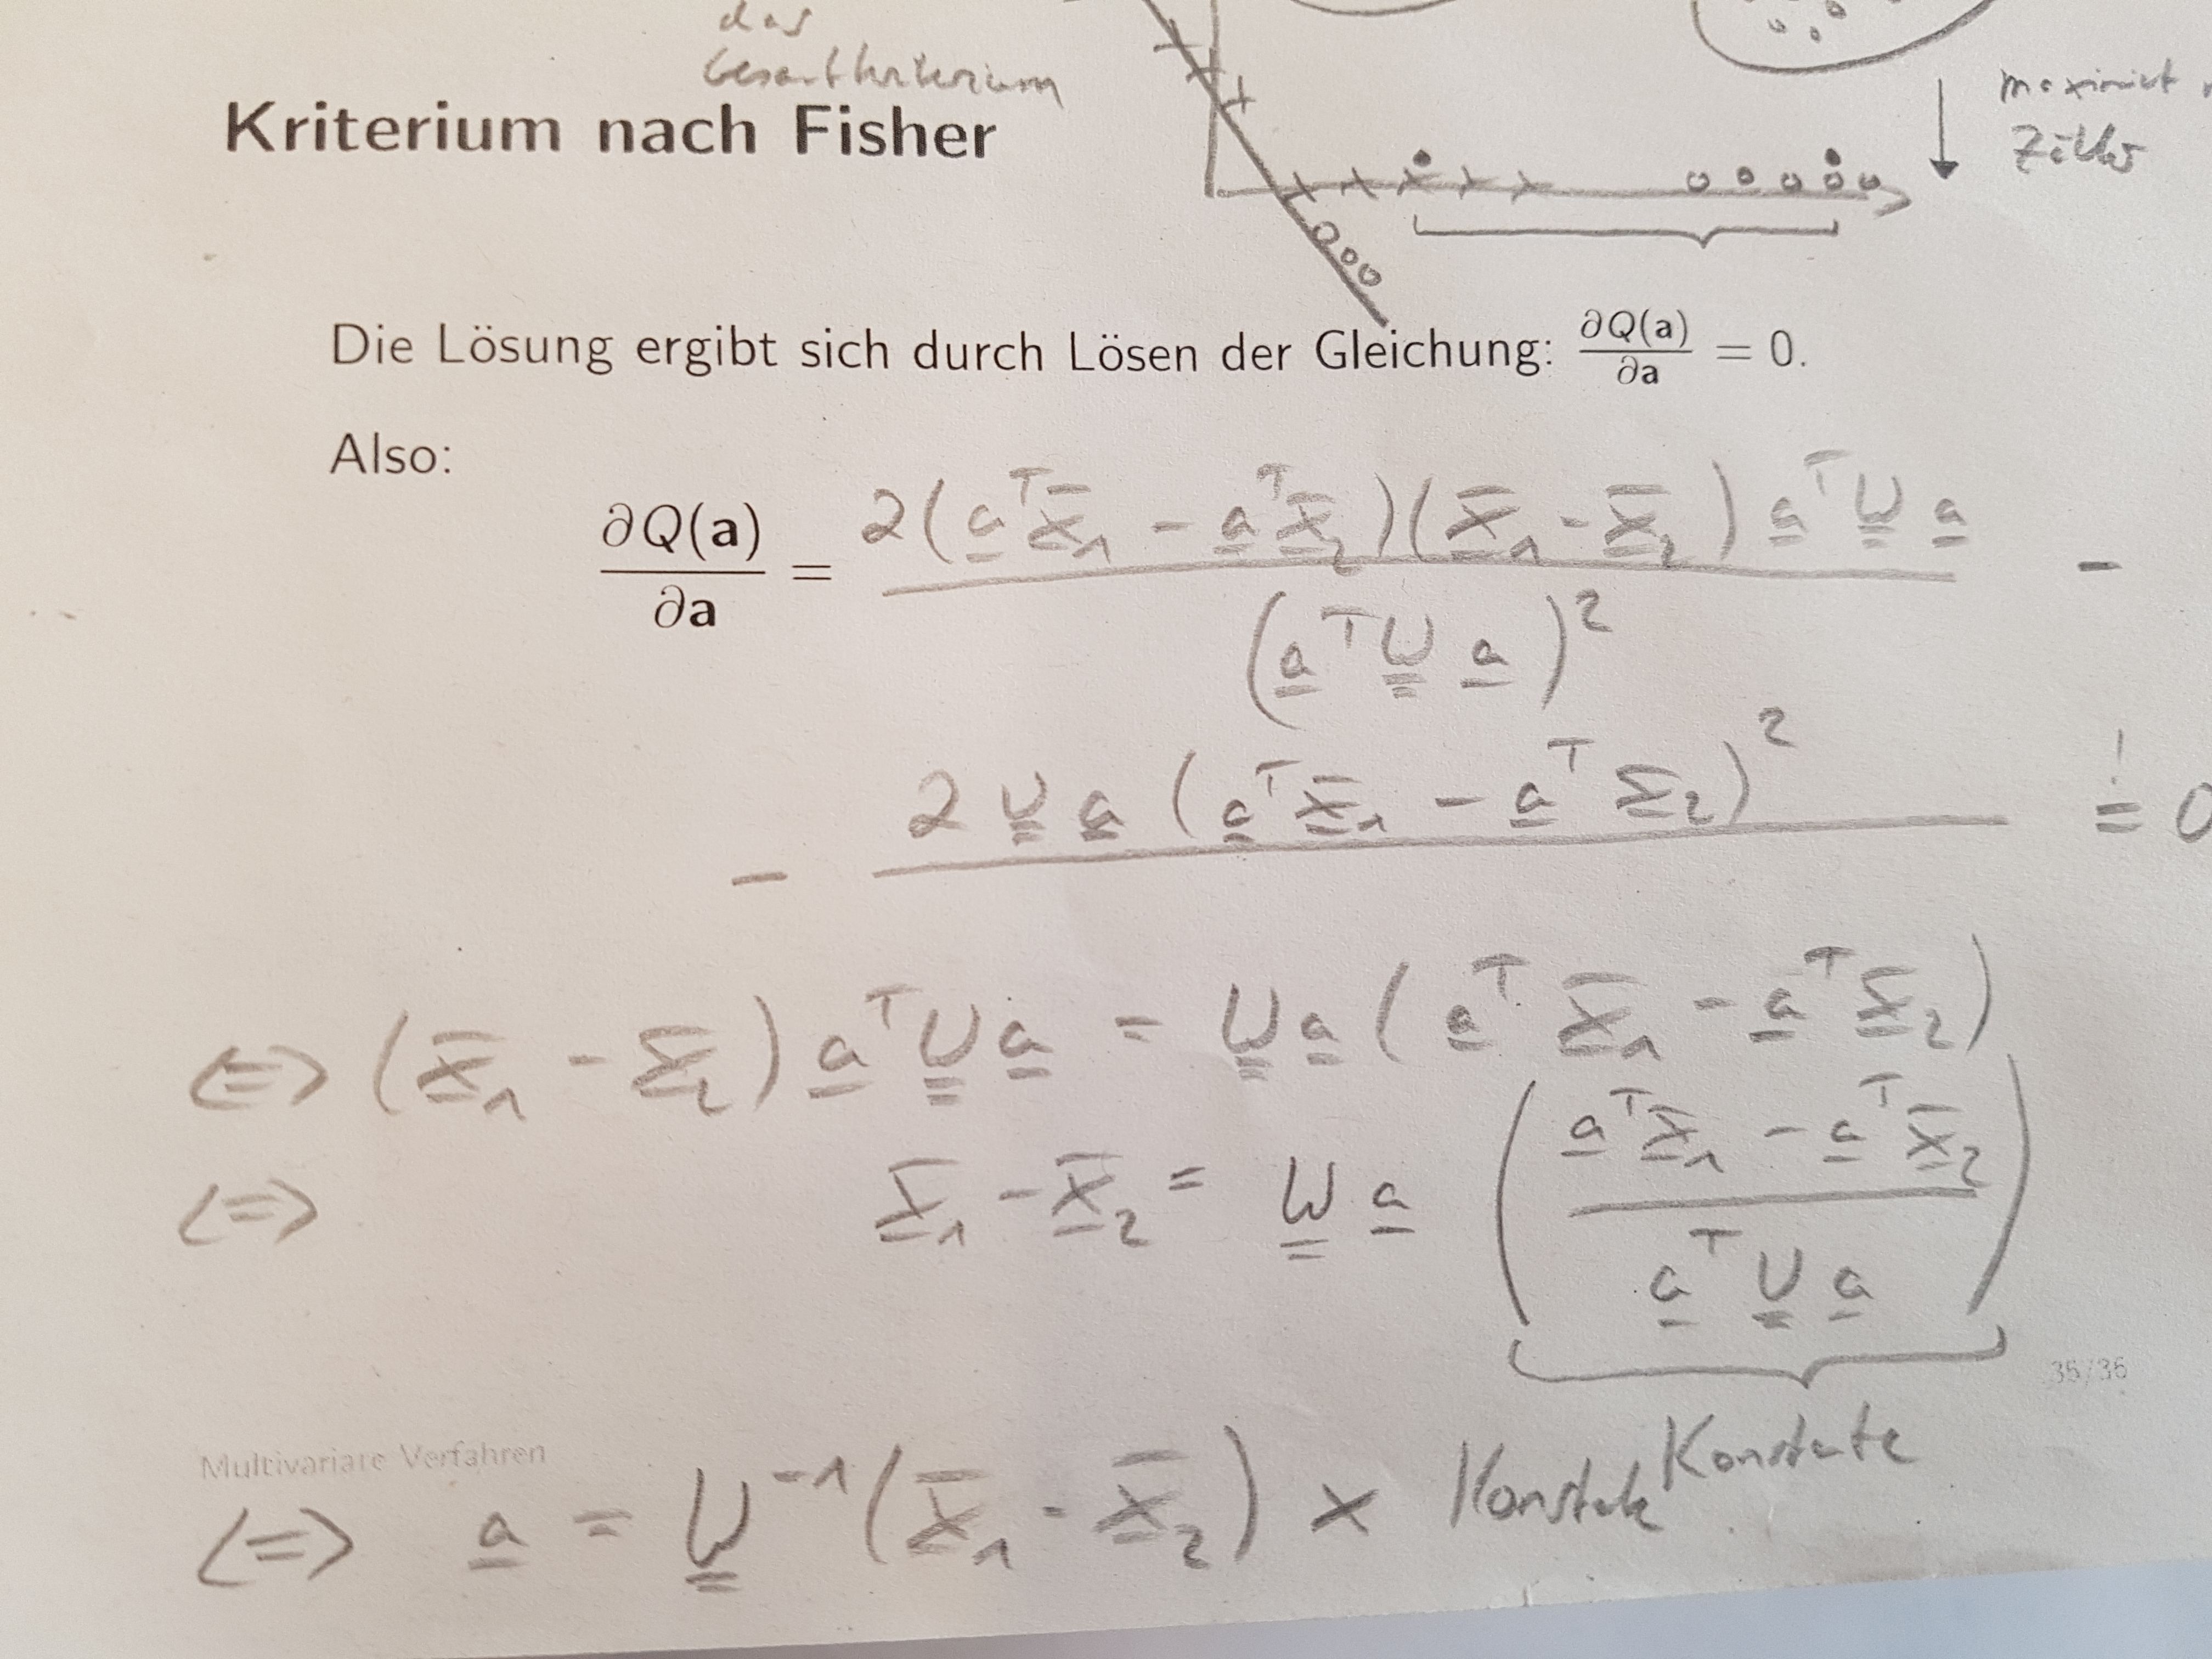 das
Gesamtkriterium
maximiert
Zähler
Kriterium nach Fisher
Die Lösung ergibt sich durch Lösen der Gleichung: ∂Q(a)/∂a = 0.
Also:
∂Q(a)/∂a = 2(a^T x̄₁ - a^T x̄₂)(x̄₁ - x̄₂) a^T W a / (a^T W a)² -
- 2 W a (a^T x̄₁ - a^T x̄₂)² / != 0
⇔ (x̄₁ - x̄₂) a^T W a = W a (a^T x̄₁ - a^T x̄₂)
⇔ x̄₁ - x̄₂ = W a ((a^T x̄₁ - a^T x̄₂) / (a^T W a))
35/36
Konstante
Multivariate Verfahren
⇔ a = W⁻¹(x̄₁ - x̄₂) × Konstante